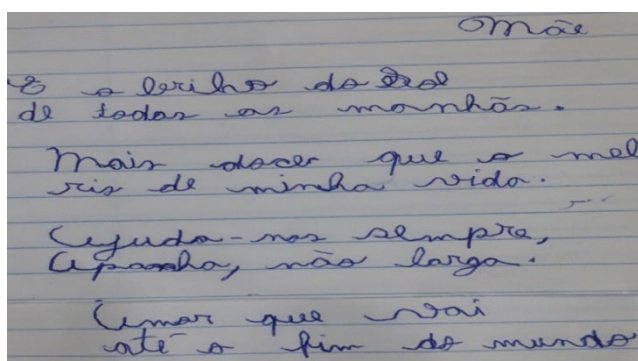 Mãe
É o brilho do sol
de todas as manhãs.
Mais doces que o mel
rio de minha vida.
Ajuda-nos sempre,
Apanha, não larga.
Amar que vai
até o fim do mundo